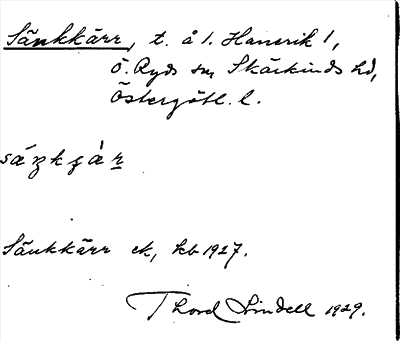 Sänkkärr, t. å 1. Hanerik 1,
Ö. Ryds sn Skärkinds hd,
Östergötl. l.
Sänkkärr ek, kb 1927.
Thord Lindell 1929.